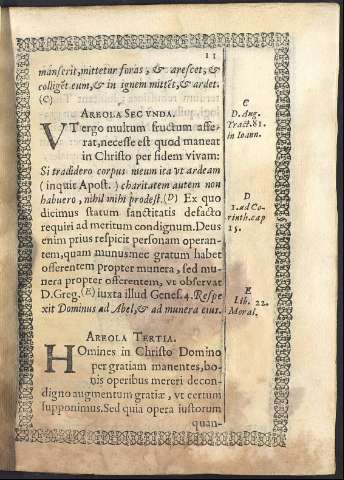 11
manserit, mittetur foras, & arescet, &
colligēt eum, & in ignem mittēt, & ardet.
(C)
AREOLA SECVNDA.
VTergo multum fructum affe-
rat, necesse est quod maneat
in Christo per fidem vivam:
Si tradidero corpus meum ita vt ardeam
(inquit Apost.) charitatem autem non
habuero, nihil mihi prodest. (D) Ex quo
dicimus statum sanctitatis defacto
requiri ad meritum condignum. Deus
enim prius respicit personam operan-
tem, quam munus: nec gratum habet
offerentem propter munera, sed mu-
nera propter offerentem, vt observat
D. Greg. (E) iuxta illud Genes. 4. Respe
xit Dominus ad Abel, & ad munera eius.
AREOLA TERTIA.
HOmines in Christo Domino
per gratiam manentes, bo-
nis operibus mereri decon-
digno augmentum gratiæ, vt certum
supponimus. Sed quia opera iustorum
quan-
C
D. Aug.
Tract. 81.
in Ioann.
D
1. ad Co-
rinth. cap
15.
E
Lib. 22.
Moral.